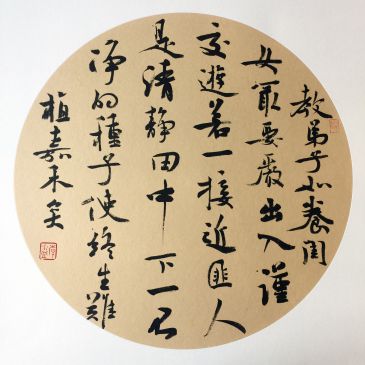 教弟子如養閨
女最要嚴出入謹
交遊若一接近匪人
是清靜田中下一不
淨的種子便終生難
植嘉禾矣